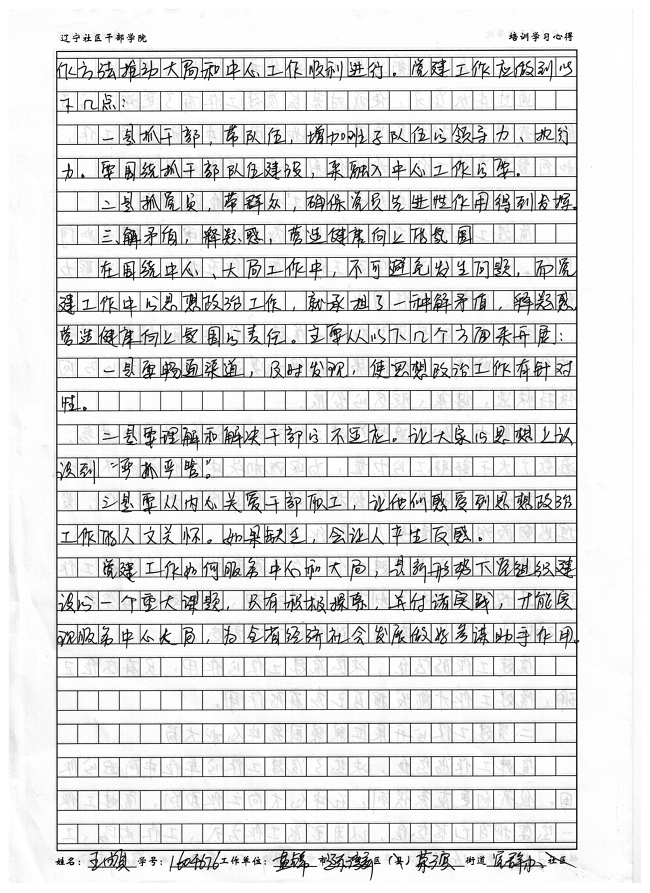 辽宁社区干部学院 培训学习心得
化方法推动大局和中心工作顺利进行。党建工作应做到以
下几点：
一是抓干部，带队伍，增加班子队伍的领导力、执行
力。要围绕抓干部队伍建设，来融入中心工作的要。
二是抓党员，带群众，确保党员先进性作用得到发挥。
三、解矛盾，释疑惑，营造健康向上的氛围
在围绕中心、大局工作中，不可避免发生问题，而党
建工作中的思想政治工作，就承担了一种解矛盾，释疑惑
营造健康向上氛围的责任。主要从以下几个方面来开展：
一是要畅通渠道，及时发现，使思想政治工作有针对
性。
二是要理解和解决干部的不适应。让大家的思想上认
识到“严抓严管”。
三是要从内心关爱干部职工，让他们感受到思想政治
工作的人文关怀。如果缺乏，会让人产生反感。
党建工作如何服务中心和大局，是新形势下党组织建
设的一个重大课题，只有积极探索，并付诸实践，才能实
现服务中心大局，为全省经济社会发展做好参谋助手作用。
姓名： 王 学号：1604676 工作单位：盘锦 市 区（县） 街道 社区